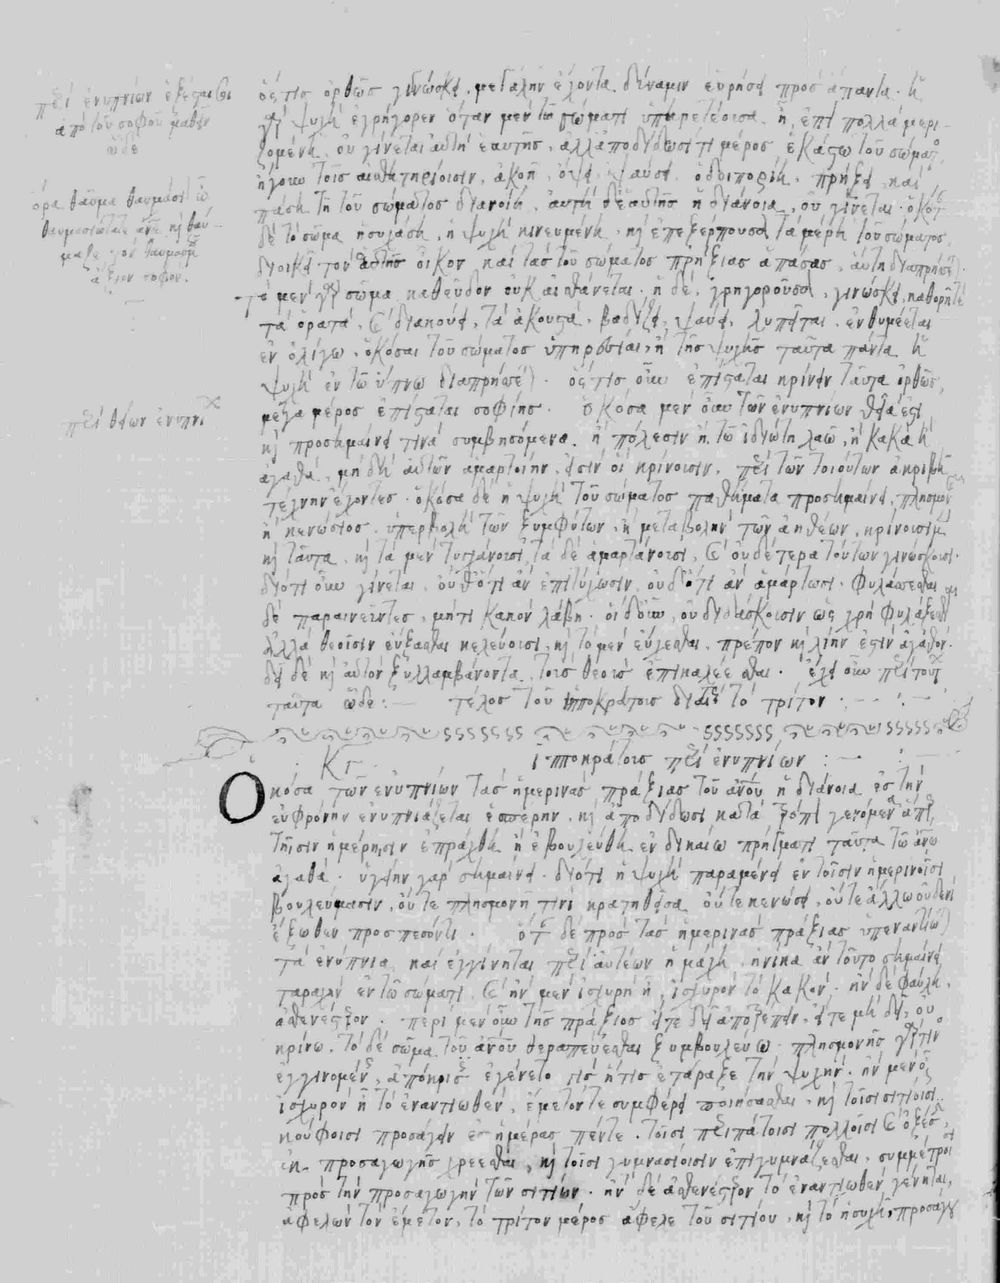 περὶ ἐνυπνίων ἐξέστι σοι
ἀπὸ τοῦ σοφοῦ μαθεῖν
ὧδε
ὅρα θαῦμα θαυμάσιον
θαυμασιώτατε ἄνερ καὶ θαύ-
μαζε τὸν θαυμασμοῦ
ἄξιον σοφόν.
περὶ θείων ἐνυπνίων
ὅστις ὀρθῶς γινώσκει, μεγάλην ἔχοντα δύναμιν εὑρήσει πρὸς ἅπαντα. ἡ
γὰρ ψυχὴ ἐγρήγορεν ὅταν μὲν τῷ σώματι ὑπηρετέουσα ᾖ, ἐπὶ πολλὰ μερι-
ζομένη, οὐ γίνεται αὐτὴ ἑαυτῆς, ἀλλ' ἀποδίδωσί τι μέρος ἑκάστῳ τοῦ σώματος
ἤγουν τοῖς αἰσθητηρίοισιν, ἀκοῇ, ὄψει, ψαύσει, ὁδοιπορίῃ, πρήξει, καὶ
πάσῃ τῇ τοῦ σώματος διανοίῃ, αὐτὴ δ' ἑαυτῆς ἡ διάνοια, οὐ γίνεται. ὁκόταν
δὲ τὸ σῶμα ἡσυχάσῃ, ἡ ψυχὴ κινευμένη, καὶ ἐπεξέρπουσα τὰ μέρη τοῦ σώματος
διοικεῖ τὸν ἑαυτῆς οἶκον καὶ τὰς τοῦ σώματος πρήξιας ἁπάσας, αὐτὴ διαπρήσσεται.
τὸ μὲν γὰρ σῶμα καθεῦδον οὐκ αἰσθάνεται. ἡ δὲ, γρηγοροῦσα, γινώσκει, καθορῇ τε
τὰ ὁρατὰ, καὶ διακούει, τὰ ἀκουστὰ, βαδίζει, ψαύει, λυπεῖται, ἐνθυμέεται
ἐν ὀλίγῳ, ὁκόσαι τοῦ σώματος ὑπηρεσίαι, ἢ τῆς ψυχῆς ταῦτα πάντα ἡ
ψυχὴ ἐν τῷ ὕπνῳ διαπρήσσεται. ὅστις οὖν ἐπίσταται κρίνειν ταῦτα ὀρθῶς,
μέγα μέρος ἐπίσταται σοφίης. ὁκόσα μὲν οὖν τῶν ἐνυπνίων θεῖά ἐστι
καὶ προσημαίνει τινὰ συμβησόμενα, ἢ πόλεσιν ἢ τῷ ἰδιώτῃ λαῷ, ἢ κακὰ ἢ
ἀγαθὰ, μὴ δι' αὐτῶν ἁμαρτοίην, εἰσὶν οἳ κρίνουσιν, περὶ τῶν τοιούτων ἀκριβῆ
τέχνην ἔχοντες. ὁκόσα δὲ ἡ ψυχὴ τοῦ σώματος παθήματα προσημαίνει, πλησμονῆς
ἢ κενώσιος, ὑπερβολὴν τῶν ξυμφύτων, ἢ μεταβολὴν τῶν ἀηθέων, κρίνουσι μὲν
καὶ ταῦτα, καὶ τὰ μὲν τυγχάνουσι, τὰ δὲ ἁμαρτάνουσι, καὶ οὐδέτερα τούτων γινώσκουσι
διότι οὖν γίνεται, οὔθ' ὅτι ἂν ἐπιτύχωσιν, οὐδ' ὅτι ἂν ἁμάρτωσι. φυλάσσεσθαι
δὲ παραινεῦντες, μή τι κακὸν λάβῃ. οἱ δ' οὖν, οὐ διδάσκουσιν ὡς χρὴ φυλάξεσθαι
ἀλλὰ θεοῖσιν εὔξασθαι κελεύουσι, καὶ τὸ μὲν εὔχεσθαι, πρέπον καὶ λίην ἐστὶν ἀγαθόν.
δεῖ δὲ καὶ αὐτὸν ξυλλαμβάνοντα, τοὺς θεοὺς ἐπικαλέεσθαι. ἔχει οὖν περὶ τούτων
ταῦτα ὧδε: — τέλος τοῦ ἱπποκράτους διαίτης τὸ τρίτον : —
Κγ. ἱπποκράτους περὶ ἐνυπνίων : —
Ὁκόσα τῶν ἐνυπνίων τὰς ἡμερινὰς πράξιας τοῦ ἀνου ἡ διάνοια ἐς τὴν
εὐφρόνην ἐνυπνιάζεται ἑσπέρην, καὶ ἀποδίδωσι κατὰ τρόπον γενόμενα ὥσπερ
τῇσιν ἡμέρῃσιν ἐπράχθη ἢ ἐβουλεύθη ἐν δικαίῳ πρήγματι ταῦτα τῷ ἀνῳ
ἀγαθά. ὑγείην γὰρ σημαίνει. διότι ἡ ψυχὴ παραμένει ἐν τοῖσιν ἡμερινοῖσι
βουλεύμασιν, οὔτε πλησμονῇ τινὶ κρατηθεῖσα οὔτε κενώσει, οὔτε ἄλλῳ οὐδενὶ
ἔξωθεν προσπεσόντι. ὅταν δὲ πρὸς τὰς ἡμερινὰς πράξιας ὑπεναντιῶται
τὰ ἐνύπνια, καὶ ἐγγίνηται περὶ αὐτέων ἡ μάχη, ἡνίκα ἂν τοῦτο σημαίνει
ταραχὴν ἐν τῷ σώματι, καὶ ἢν μὲν ἰσχυρὴ ᾖ, ἰσχυρὸν τὸ κακόν. ἢν δὲ φαύλη,
ἀσθενέστερον. περὶ μὲν οὖν τῆς πράξιος εἴτε δεῖ ἀποτρέπειν, εἴτε μὴ δεῖ, οὐ
κρίνω. τὸ δὲ σῶμα τοῦ ἀνου θεραπεύεσθαι ξυμβουλεύω. πλησμονῆς γάρ τινος
ἐγγινομένης, ἀπόκρισις ἐγένετό τις ἥτις ἐτάραξε τὴν ψυχήν. ἢν μὲν οὖν
ἰσχυρὸν ᾖ τὸ ἐναντιωθὲν, ἔμετόν τε συμφέρει ποιήσασθαι, καὶ τοῖσι σιτίοισι
κούφοισι προσάγειν ἐς ἡμέρας πέντε. τοῖσι περιπάτοισι πολλοῖσι καὶ ὀξέσιν
ἐκ προσαγωγῆς χρέεσθαι, καὶ τοῖσι γυμνασίοισιν ἐπιγυμνάζεσθαι, συμμέτροισι
πρὸς τὴν προσαγωγὴν τῶν σιτίων. ἢν δὲ ἀσθενέστερον τὸ ἐναντιωθὲν γένηται,
ἀφελὼν τὸν ἔμετον, τὸ τρίτον μέρος ἄφελε τοῦ σιτίου, καὶ τὸ ἡσυχῇ, προσάγου